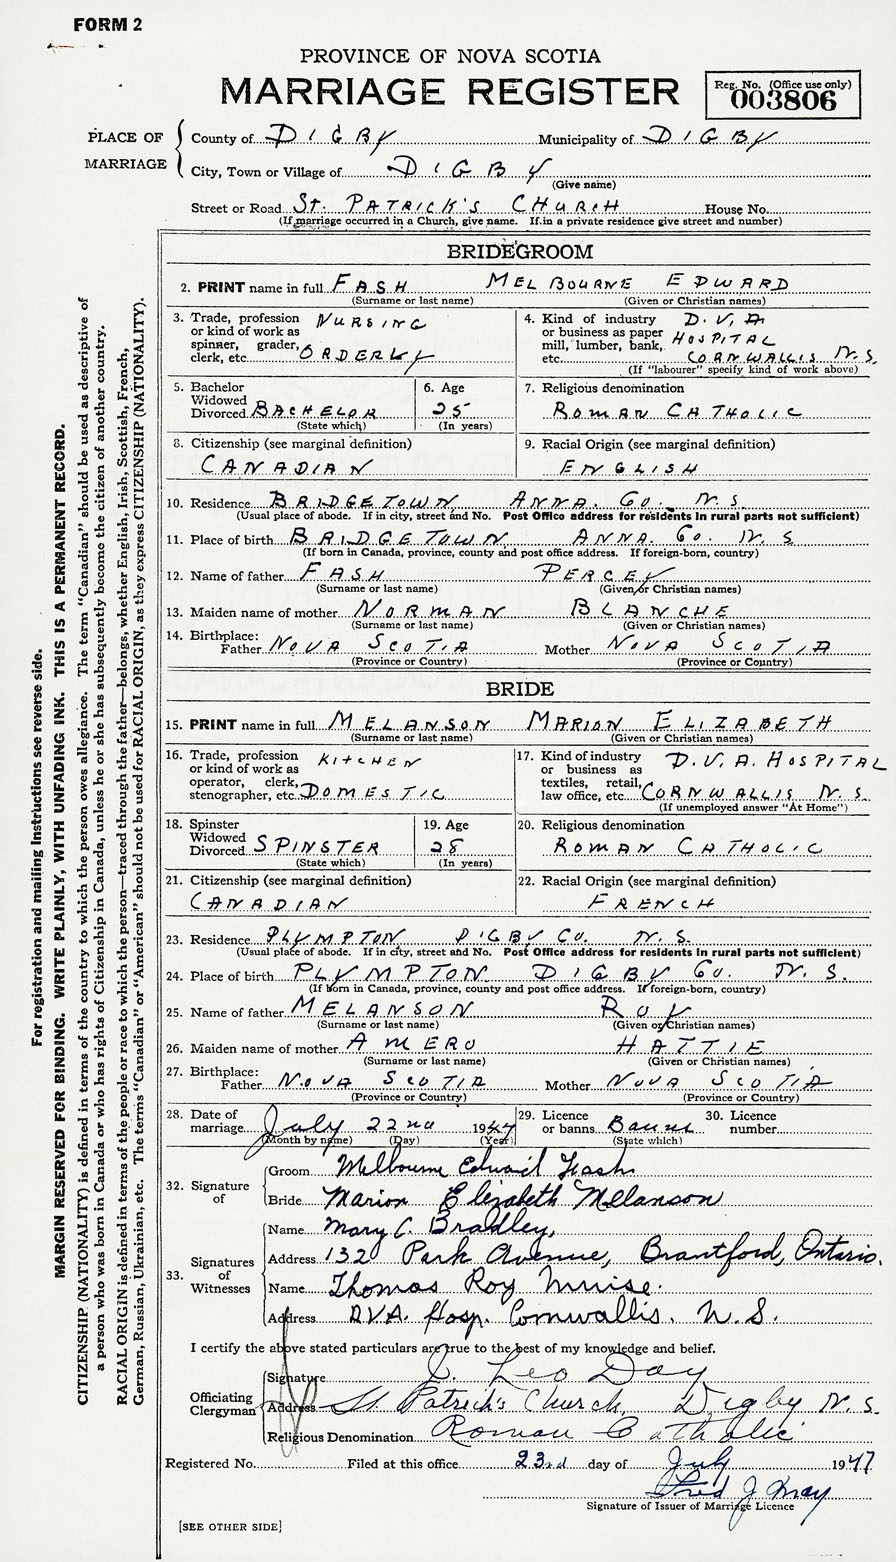 FORM 2
PROVINCE OF NOVA SCOTIA
MARRIAGE REGISTER
Reg. No. (Office use only)
003806
PLACE OF MARRIAGE
County of DIGBY Municipality of DIGBY
City, Town or Village of DIGBY
(Give name)
Street or Road ST. PATRICK'S CHURCH House No.
(If marriage occurred in a Church, give name. If in a private residence give street and number)
BRIDEGROOM
2. PRINT name in full FASH MELBOURNE EDWARD
(Surname or last name) (Given or Christian names)
3. Trade, profession or kind of work as spinner, grader, clerk, etc. NURSING ORDERLY
4. Kind of industry or business as paper mill, lumber, bank, etc. D.V.A. HOSPITAL CORNWALLIS N.S.
(If "labourer" specify kind of work above)
5. Bachelor Widowed Divorced BACHELOR
(State which)
6. Age 25
(In years)
7. Religious denomination
ROMAN CATHOLIC
8. Citizenship (see marginal definition)
CANADIAN
9. Racial Origin (see marginal definition)
ENGLISH
10. Residence BRIDGETOWN ANNA. CO. N.S.
(Usual place of abode. If in city, street and No. Post Office address for residents in rural parts not sufficient)
11. Place of birth BRIDGETOWN ANNA. CO. N.S
(If born in Canada, province, county and post office address. If foreign-born, country)
12. Name of father FASH PERCEY
(Surname or last name) (Given or Christian names)
13. Maiden name of mother NORMAN BLANCHE
(Surname or last name) (Given or Christian names)
14. Birthplace:
Father NOVA SCOTIA Mother NOVA SCOTIA
(Province or Country) (Province or Country)
BRIDE
15. PRINT name in full MELANSON MARION ELIZABETH
(Surname or last name) (Given or Christian names)
16. Trade, profession or kind of work as operator, clerk, stenographer, etc. KITCHEN DOMESTIC
17. Kind of industry or business as textiles, retail, law office, etc. D.V.A. HOSPITAL CORNWALLIS N.S.
(If unemployed answer "At Home")
18. Spinster Widowed Divorced SPINSTER
(State which)
19. Age 28
(In years)
20. Religious denomination
ROMAN CATHOLIC
21. Citizenship (see marginal definition)
CANADIAN
22. Racial Origin (see marginal definition)
FRENCH
23. Residence PLYMPTON DIGBY CO. N.S.
(Usual place of abode. If in city, street and No. Post Office address for residents in rural parts not sufficient)
24. Place of birth PLYMPTON DIGBY CO. N.S.
(If born in Canada, province, county and post office address. If foreign-born, country)
25. Name of father MELANSON ROY
(Surname or last name) (Given or Christian names)
26. Maiden name of mother AMERO HATTIE
(Surname or last name) (Given or Christian names)
27. Birthplace:
Father NOVA SCOTIA Mother NOVA SCOTIA
(Province or Country) (Province or Country)
28. Date of marriage July 22nd 1947
(Month by name) (Day) (Year)
29. Licence or banns Banns
(State which)
30. Licence number
32. Signature of
Groom Melbourne Edward Fash
Bride Marion Elizabeth Melanson
33. Signatures of Witnesses
Name Mary C. Bradley,
Address 132 Park Avenue, Brantford, Ontario.
Name Thomas Roy Muise.
Address D.V.A. Hosp. Cornwallis. N.S.
I certify the above stated particulars are true to the best of my knowledge and belief.
Officiating Clergyman
Signature J. Leo Day
Address St. Patrick's Church Digby N.S.
Religious Denomination Roman Catholic
Registered No. Filed at this office 23rd day of July 1947
Fred J
Signature of Issuer of Marriage Licence
[SEE OTHER SIDE]
For registration and mailing instructions see reverse side.
MARGIN RESERVED FOR BINDING. WRITE PLAINLY, WITH UNFADING INK. THIS IS A PERMANENT RECORD.
CITIZENSHIP (NATIONALITY) is defined in terms of the country to which the person owes allegiance. The term "Canadian" should be used as descriptive of
a person who was born in Canada or who has rights of Citizenship in Canada, unless he or she has subsequently become the citizen of another country.
RACIAL ORIGIN is defined in terms of the people or race to which the person—traced through the father—belongs, whether English, Irish, Scottish, French,
German, Russian, Ukrainian, etc. The terms "Canadian" or "American" should not be used for RACIAL ORIGIN, as they express CITIZENSHIP (NATIONALITY).